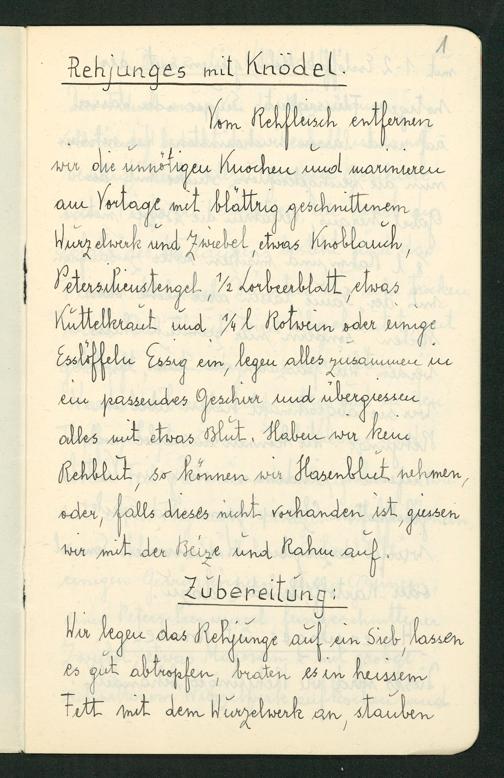 1
Rehjunges mit Knödel.
Vom Rehfleisch entfernen
wir die unnötigen Knochen und marinieren
am Vortage mit blättrig geschnittenem
Wurzelwerk und Zwiebel, etwas Knoblauch,
Petersilienstengel, 1/2 Lorbeerblatt, etwas
Kuttelkraut und 1/4 l Rotwein oder einige
Esslöffeln Essig ein, legen alles zusammen in
ein passendes Geschirr und übergiessen
alles mit etwas Blut. Haben wir kein
Rehblut, so können wir Hasenblut nehmen,
oder, falls dieses nicht vorhanden ist, giessen
wir mit der Beize und Rahm auf.
Zubereitung:
Wir legen das Rehjunge auf ein Sieb, lassen
es gut abtropfen, braten es in heissem
Fett mit dem Wurzelwerk an, stauben